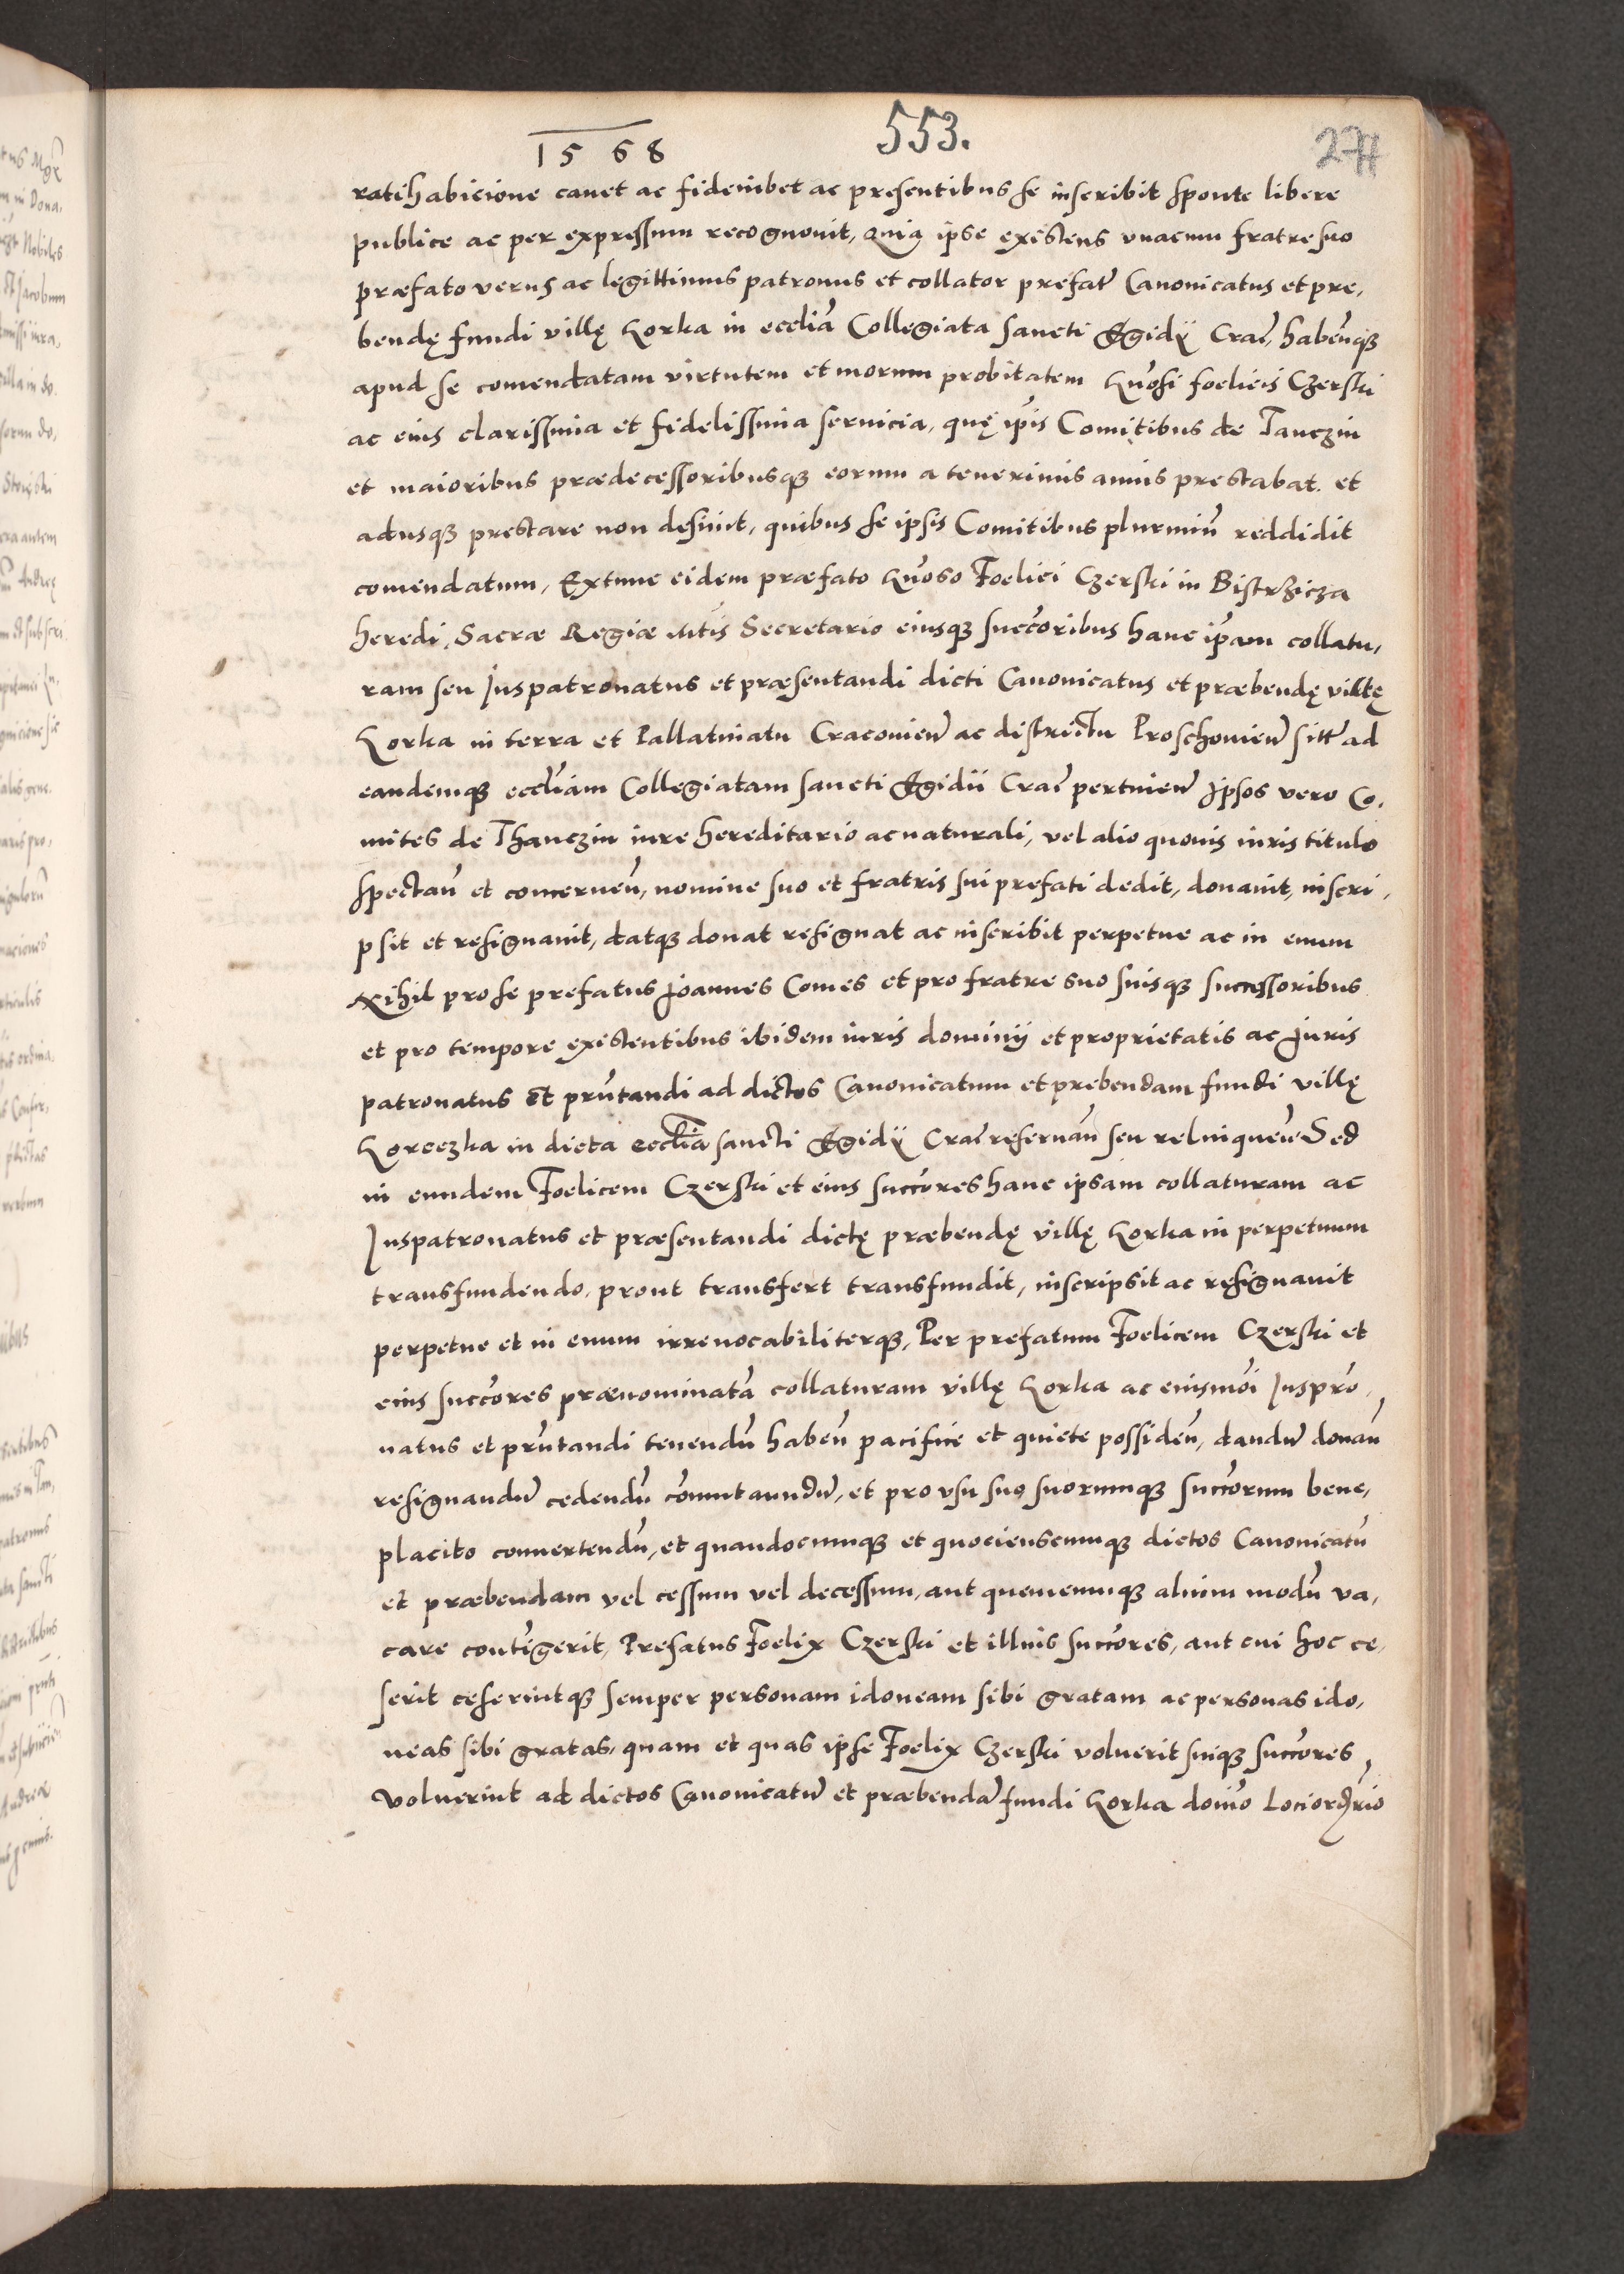 1568
553.
277
ratihabicione cauet ac fideiubet ac presentibus se inscribit sponte libere
publice ac per expressum recognouit, Quia ipse existens vnacum fratre suo
præfato verus ac legittimus patronus et collator prefat Canonicatus et pre,
bendę fundi villę Korka in eccliã Collegiata sancti Egidij Crac̃, habeñq3
apud se comendatam virtutem et morum probitatem gñosi foelicis Czerski
ac eius clarissima et fidelissima seruicia, quę ip̃is Comitibus de Tanczin
et maioribus prædecessoribusq3 eorum a tenerimis annis prestabat. et
adusq3 prestare non desinit, quibus se ipsis Comitibus plurimũ reddidit
comendatum, Extunc eidem præfato gñoso Foelici Czerski in Bistrzicza
heredi, Sacræ Regiæ Mtis Secretario eiusq3 succ̃oribus hanc ip̃am collatu,
ram seu Juspatronatus et præsentandi dicti Canonicatus et præbendę villę
Korka in terra et Pallatinatu Cracouien̄ ac districtu Proschouien̄ sitt ad
eandemq3 eccl̃iam Collegiatam sancti Egidii Crac̃ pertinen̄ Jpsos vero Co,
mites de Thanczin iure hereditario ac naturali, vel alio quouis iuris titulo
spectañ et concerneñ, nomine suo et fratris sui prefati dedit, donauit, inscri,
psit et resignauit, datq3 donat resignat ac inscribit perpetue ac in euum
Nihil pro se prefatus Joannes Comes et pro fratre suo suisq3 successoribus
et pro tempore existentibus ibidem iuris dominij et proprietatis ac Juris
patronatus et prñtandi ad dictos Canonicatum et prebendam fundi villę
Korczka in dicta eccl̃ia sancti Egidij Crac̃ reseruañ seu relinqueñ Sed
in eundem Foelicem Czerski et eius succ̃ores hanc ipsam collaturam ac
Juspatronatus et præsentandi dictę præbendę villę Korka in perpetuum
transfundendo, prout transfert transfundit, inscripsit ac resignauit
perpetue et in euum irreuocabiliterq3, Per prefatum Foelicem Czerski et
eius succ̃ores prænominatã collaturam villę Korka ac eiusmõi Juspr̃o,
natus et prñtandi tenendũ habeñ pacifice et quiete possideñ, dandũ donañ
resignandũ cedendũ com̃utaundũ, et pro vsu suo suorumq3 succ̃orum bene,
placito conuertendũ, et quandocumq3 et quocienscumq3 dictos Canonicatũ
et præbendam vel cessum vel decessum, aut quemcumq3 alium modũ va,
care contigerit, Prefatus Foelix Czerski et illius succ̃ores, aut cui hoc ce,
serit ceserintq3 semper personam idoneam sibi gratam ac personas ido,
neas sibi gratas, quam et quas ipse Foelix Czerski voluerit suiq3 succ̃ores
voluerint ad dictos Canonicatũ et præbendã fundi Korka dom̃o Lociordr̃io